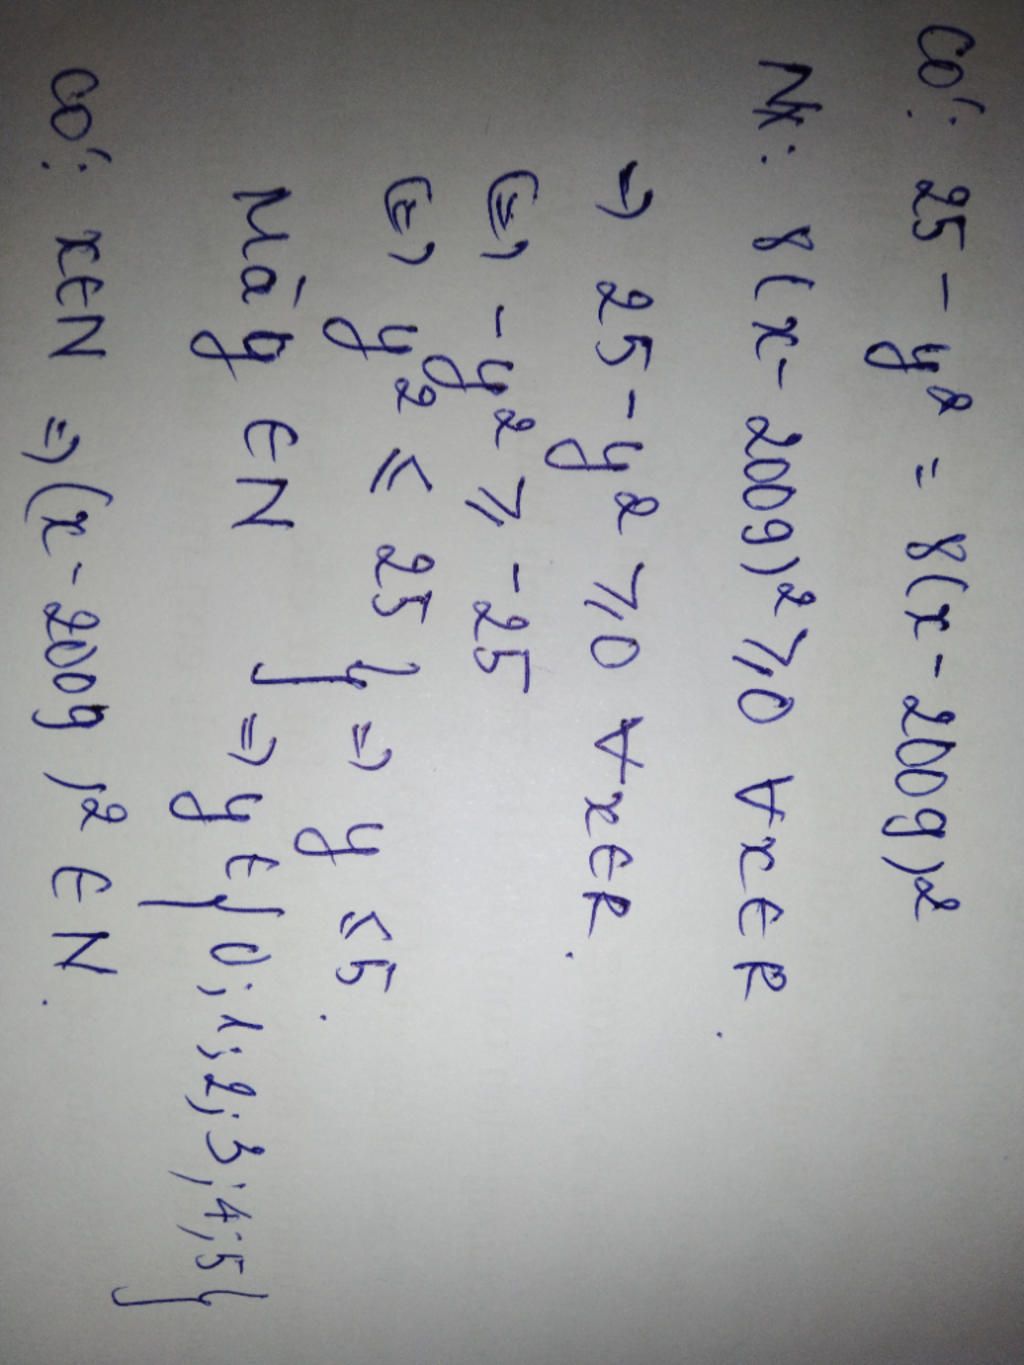 Có: 25 - y² = 8(x - 2009)²
Nx: 8(x - 2009)² ⩾ 0 ∀x ∈ R.
=> 25 - y² ⩾ 0 ∀x ∈ R.
<=> -y² ⩾ -25
<=> y² ≤ 25 } => y ≤ 5.
Mà y ∈ N } => y ∈ {0; 1; 2; 3; 4; 5}
Có: x ∈ N => (x - 2009)² ∈ N.